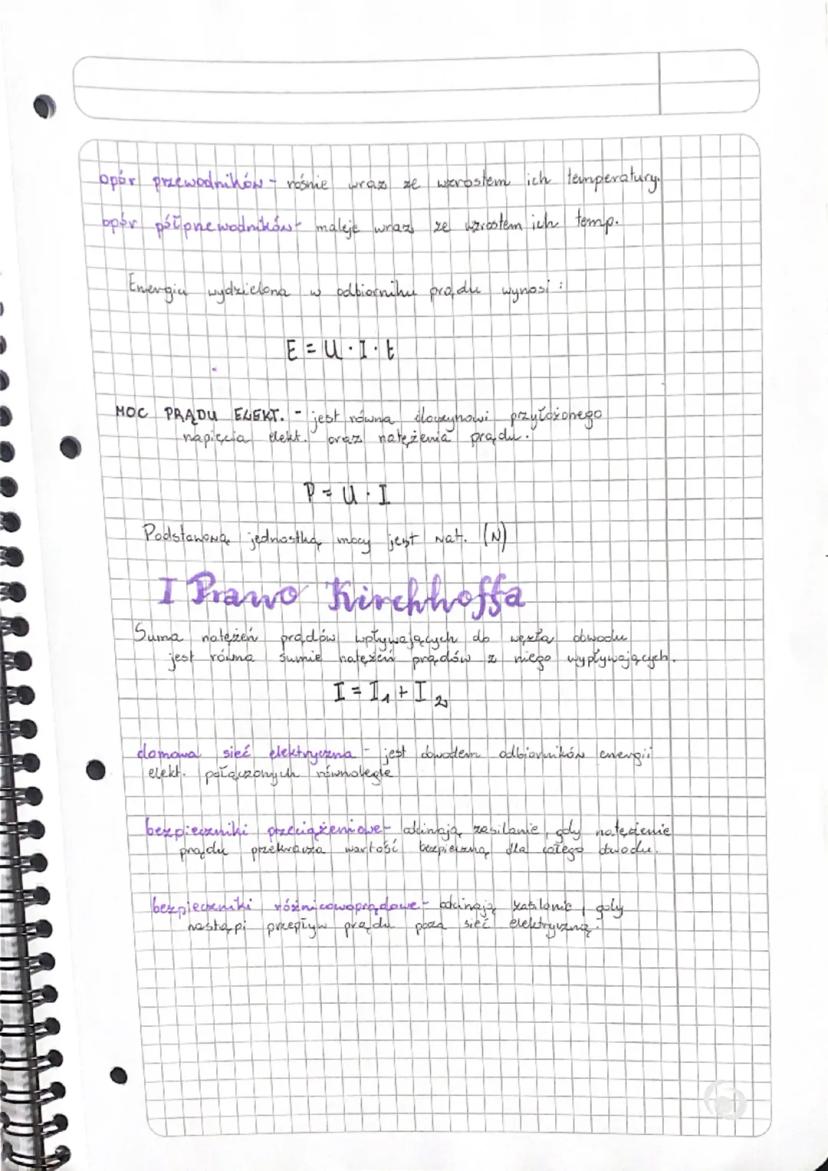 opór przewodników - rośnie wraz ze wzrostem ich temperatury.
opór półprzewodników - maleje wraz ze wzrostem ich temp.
Energia wydzielona w odbiorniku prądu wynosi:
E = U · I · t
MOC PRĄDU ELEKT. - jest równa iloczynowi przyłożonego
napięcia elekt. oraz natężenia prądu.
P = U · I
Podstawową jednostką mocy jest wat. (N)
I Prawo Kirchhoffa
Suma natężeń prądów wpływających do węzła obwodu
jest równa sumie natężeń prądów z niego wypływających.
I = I₁ + I₂
domowa sieć elektryczna - jest obwodem odbiorników energii
elekt. połączonych równolegle
bezpieczniki przeciążeniowe - odcinają zasilanie, gdy natężenie
prądu przekracza wartość bezpieczną dla całego obwodu.
bezpieczniki różnicowoprądowe - odcinają zasilanie, gdy
nastąpi przepływ prądu poza sieć elektryczną.